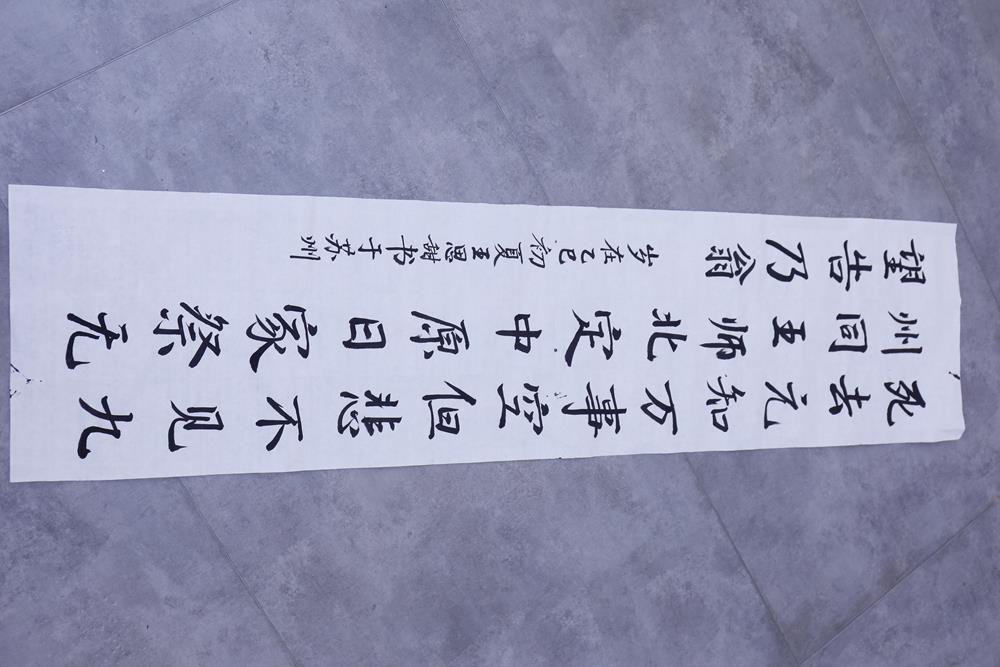 死去元知万事空但悲不见九
州同王师北定中原日家祭无
望告乃翁 岁在乙巳初夏王思书于苏州